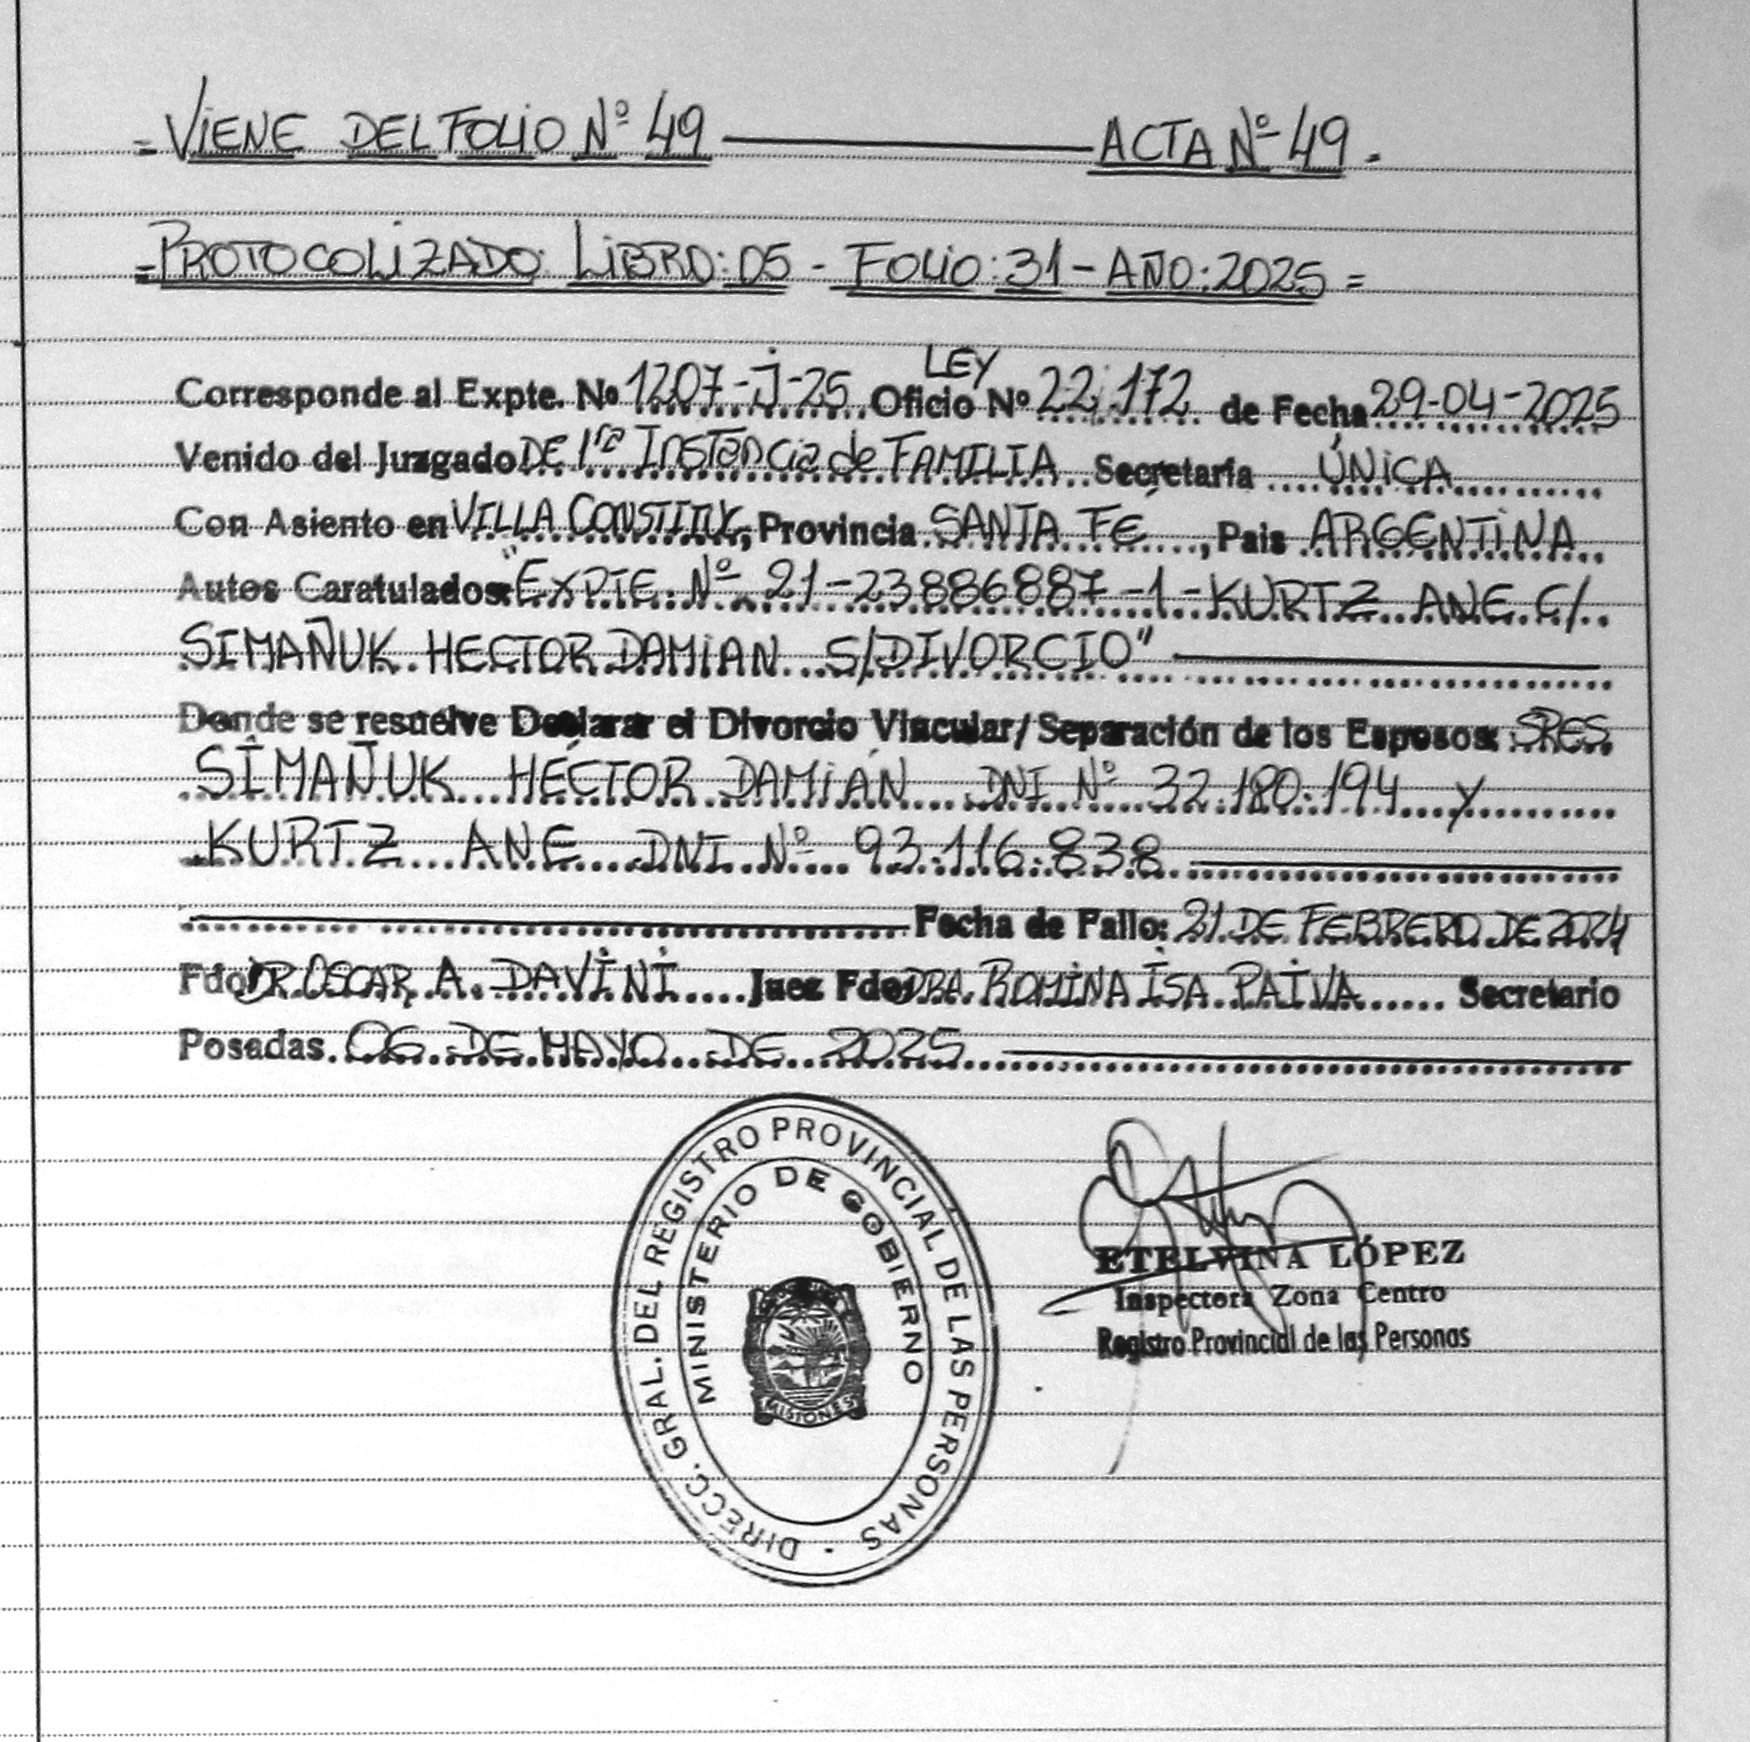 = VIENE DEL FOLIO Nº 49 ———— ACTA Nº 49 .-
= PROTOCOLIZADO: LIBRO: 05 - FOLIO: 31 - AÑO: 2025 =
LEY
Corresponde al Expte. Nº 1207-J-25 Oficio Nº 22.172 de Fecha 29-04-2025
Venido del Juzgado DE 1ra Instancia de FAMILIA Secretaría ÚNICA
Con Asiento en VILLA CONSTITUC, Provincia SANTA FÉ, Pais ARGENTINA
Autos Caratulados: "EXPTE. Nº 21-23886887-1-KURTZ ANE C/
SIMAÑUK HECTOR DAMIAN S/DIVORCIO" ————
Donde se resuelve Declarar el Divorcio Vincular/Separación de los Esposos: SRES.
SIMAÑUK HÉCTOR DAMIÁN DNI Nº 32.180.194 y
KURTZ ANE DNI Nº 93.116.838 ————
———— Fecha de Fallo: 21 DE FEBRERO DE 2024
Fdo: DR OSCAR A. DAVINI Juez Fdo: DRA. ROMINA ISA PAIVA Secretario
Posadas. 06 DE MAYO DE 2025 ————
DIRECC. GRAL. DEL REGISTRO PROVINCIAL DE LAS PERSONAS
MINISTERIO DE GOBIERNO
MISIONES
ETELVINA LÓPEZ
Inspectora Zona Centro
Registro Provincial de las Personas